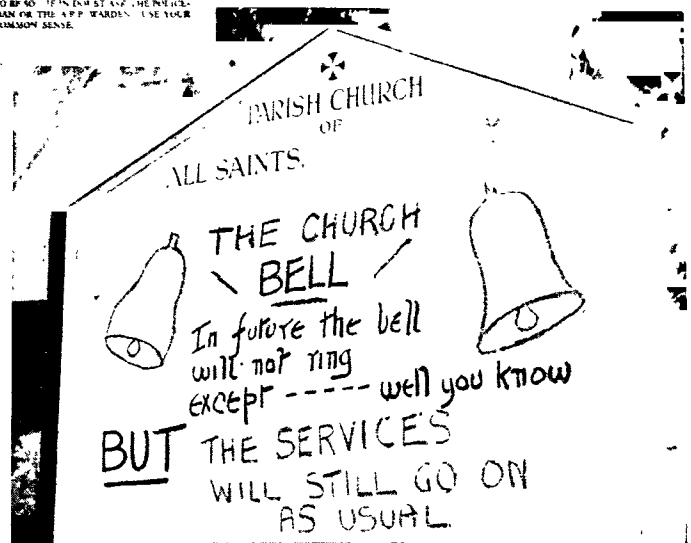 MAN OR THE A.R.P. WARDEN. USE YOUR
COMMON SENSE.
PARISH CHURCH
OF
ALL SAINTS.
THE CHURCH
BELL
In future the bell
will not ring
except ----- well you know
BUT THE SERVICES
WILL STILL GO ON
AS USUAL.